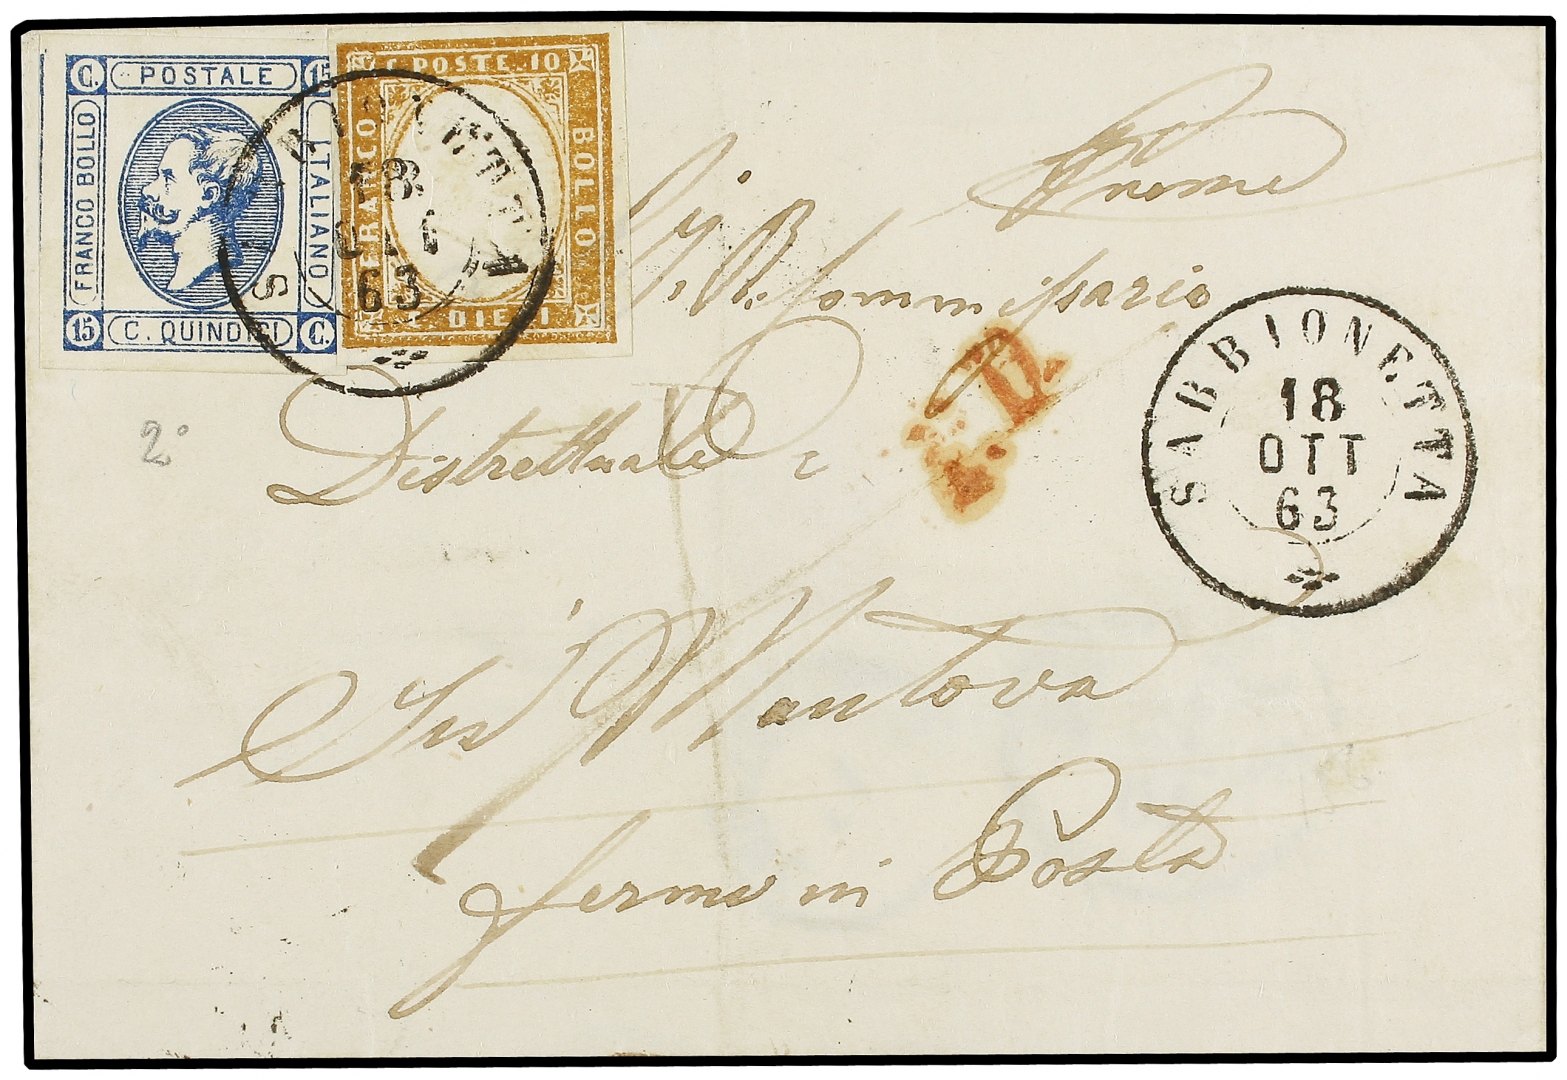 C. POSTALE 15
FRANCO BOLLO
ITALIANO
15 C. QUINDICI C.
C. POSTE 10
FRANCO
BOLLO
C. DIECI
18
OTT
63
P.D.
R. Commissario
Distrettuale
2°
SABBIONETTA
18
OTT
63
Mantova
fermo in Posta